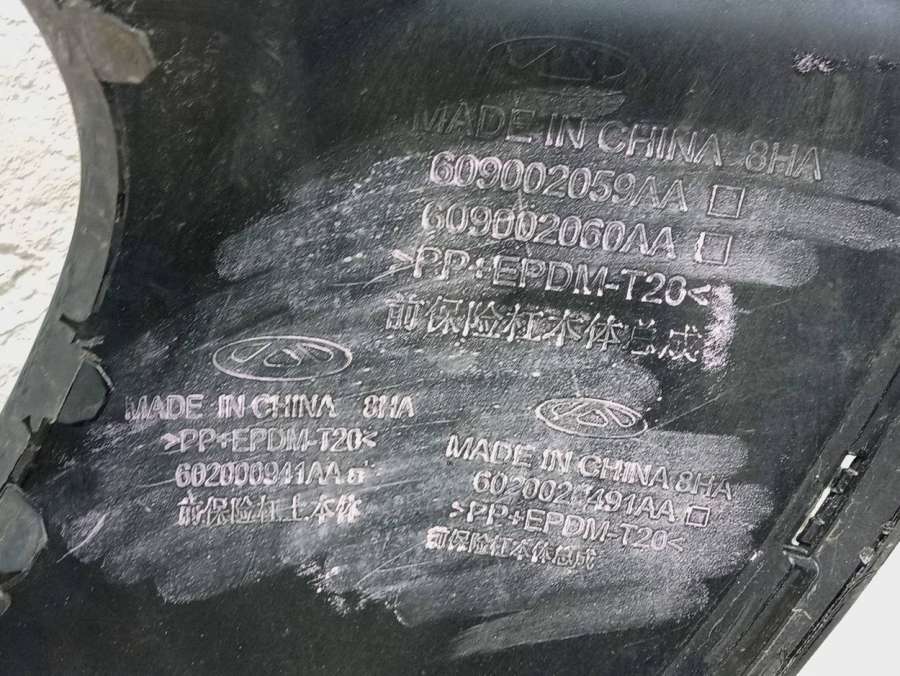 MADE IN CHINA 8HA
609002059AA
609002060AA
>PP+EPDM-T20<
前保险杠本体总成
MADE IN CHINA 8HA
>PP+EPDM-T20<
602000941AA
前保险杠上本体
MADE IN CHINA 8HA
>PP+EPDM-T20<
前保险杠本体总成